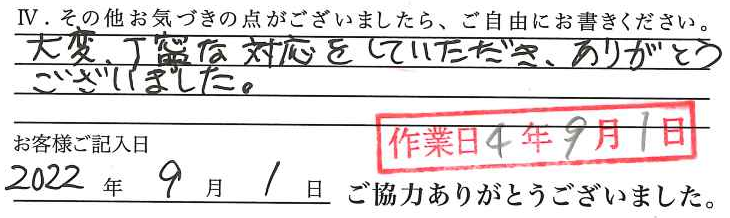 Ⅳ．その他お気づきの点がございましたら、ご自由にお書きください。
大変、丁寧な対応をしていただき、ありがとう
ございました。
作業日 4年9月1日
お客様ご記入日
2022年9月1日 ご協力ありがとうございました。